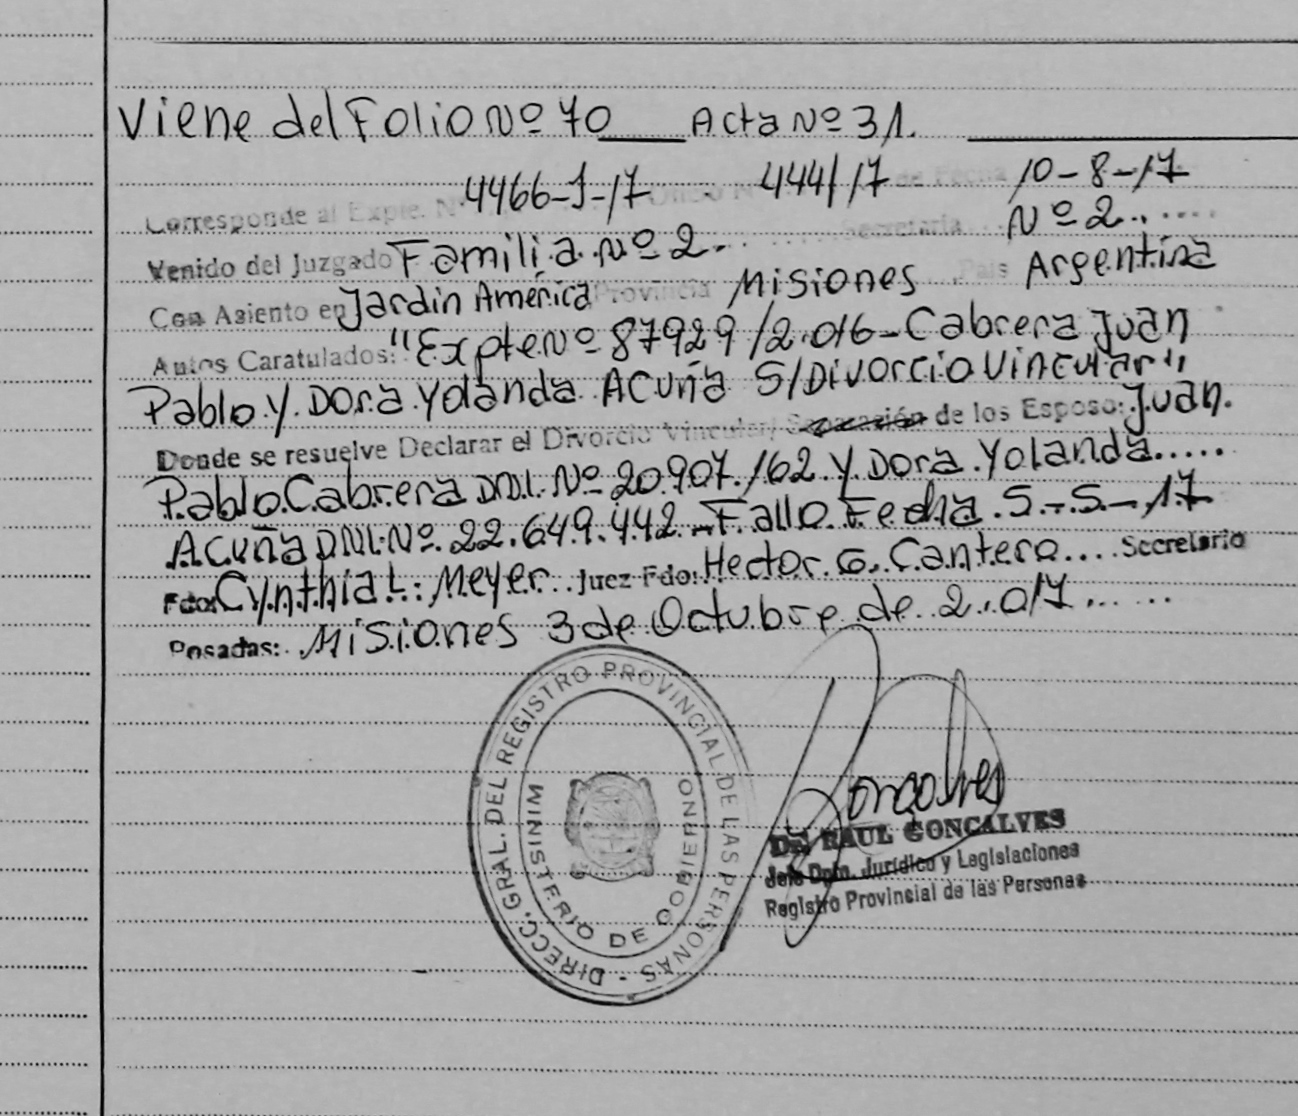 Viene del Folio Nº 70 ___ Acta Nº 31.
Corresponde al Expte. Nº 4466-J-17 Oficio Nº 444/17 de Fecha 10-8-17
Venido del Juzgado Familia Nº 2. Secretaria Nº 2
Con Asiento en Jardin America Provincia Misiones Pais Argentina
Autos Caratulados: "Expte Nº 87929/2.016 - Cabrera Juan
Pablo y Dora Yolanda Acuña S/Divorcio Vincular"
Donde se resuelve Declarar el Divorcio Vincular/ Separación de los Esposo: Juan
Pablo Cabrera D.N.I. Nº 20.907.162 y Dora Yolanda
Acuña DNI. Nº 22.649.442. - Fallo Fecha 5-5-17
Fdo: Cynthia L. Meyer Juez Fdo: Hector G. Cantero Secretario
Posadas: Misiones 3 de Octubre de 2.017
DIRECC. GRAL. DEL REGISTRO PROVINCIAL DE LAS PERSONAS -
MINISTERIO DE GOBIERNO
Gonçalves
Dr. RAUL GONCALVES
Jefe Dpto. Jurídico y Legislaciones
Registro Provincial de las Personas